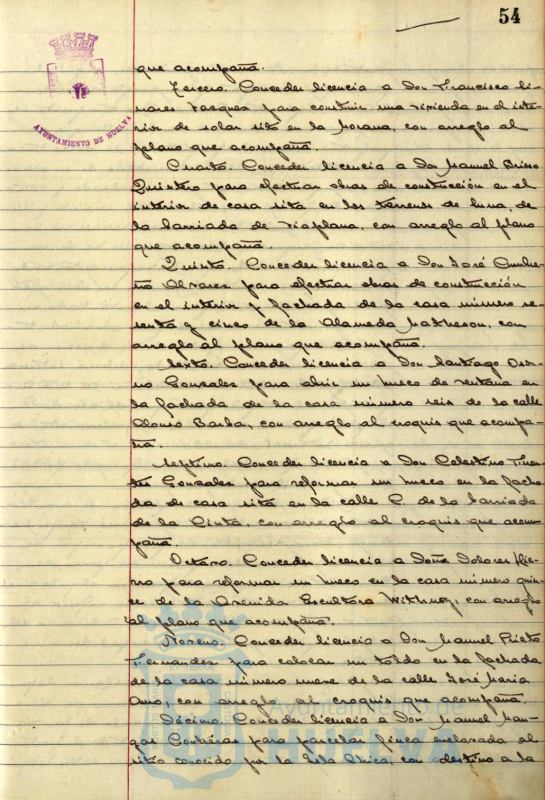 54
AYUNTAMIENTO DE HUELVA
que acompaña.
Tercero. Conceder licencia a Don Francisco Li-
nares Vazquez para construir una vivienda en el inte-
rior de solar sito en la Morana, con arreglo al
plano que acompaña.
Cuarto. Conceder licencia a Don Manuel
Quintero para efectuar obras de construcción en el
interior de casa sita en los terrenos de de
la barriada de Viaplana, con arreglo al plano
que acompaña.
Quinto. Conceder licencia a Don José
Alvarez para efectuar obras de construcción
en el interior y fachada de la casa número se-
senta y cinco de la Alameda Matheson, con
arreglo al plano que acompaña.
Sexto. Conceder licencia a Don Santiago Oso-
rno Gonzalez para abrir un hueco de ventana en
la fachada de la casa número seis de la calle
Alonso Barba, con arreglo al croquis que acompa-
ña.
Septimo. Conceder licencia a Don Celestino
Gonzalez para reformar un hueco en la facha-
da de casa sita en la calle C. de la barriada
de la Cinta, con arreglo al croquis que acom-
paña.
Octavo. Conceder licencia a Doña Dolores Hie-
rro para reformar un hueco en la casa número quin-
ce de la Avenida Escultora Withney, con arreglo
al plano que acompaña.
Noveno. Conceder licencia a Don Manuel Prieto
Fernandez para colocar un toldo en la fachada
de la casa número nueve de la calle José Maria
Amo, con arreglo al croquis que acompaña.
Décimo. Conceder licencia a Don Manuel
Contreras para parcelar finca enclavada al
sitio conocido por la Isla Chica, con destino a la
Ayuntamiento de
HUELVA